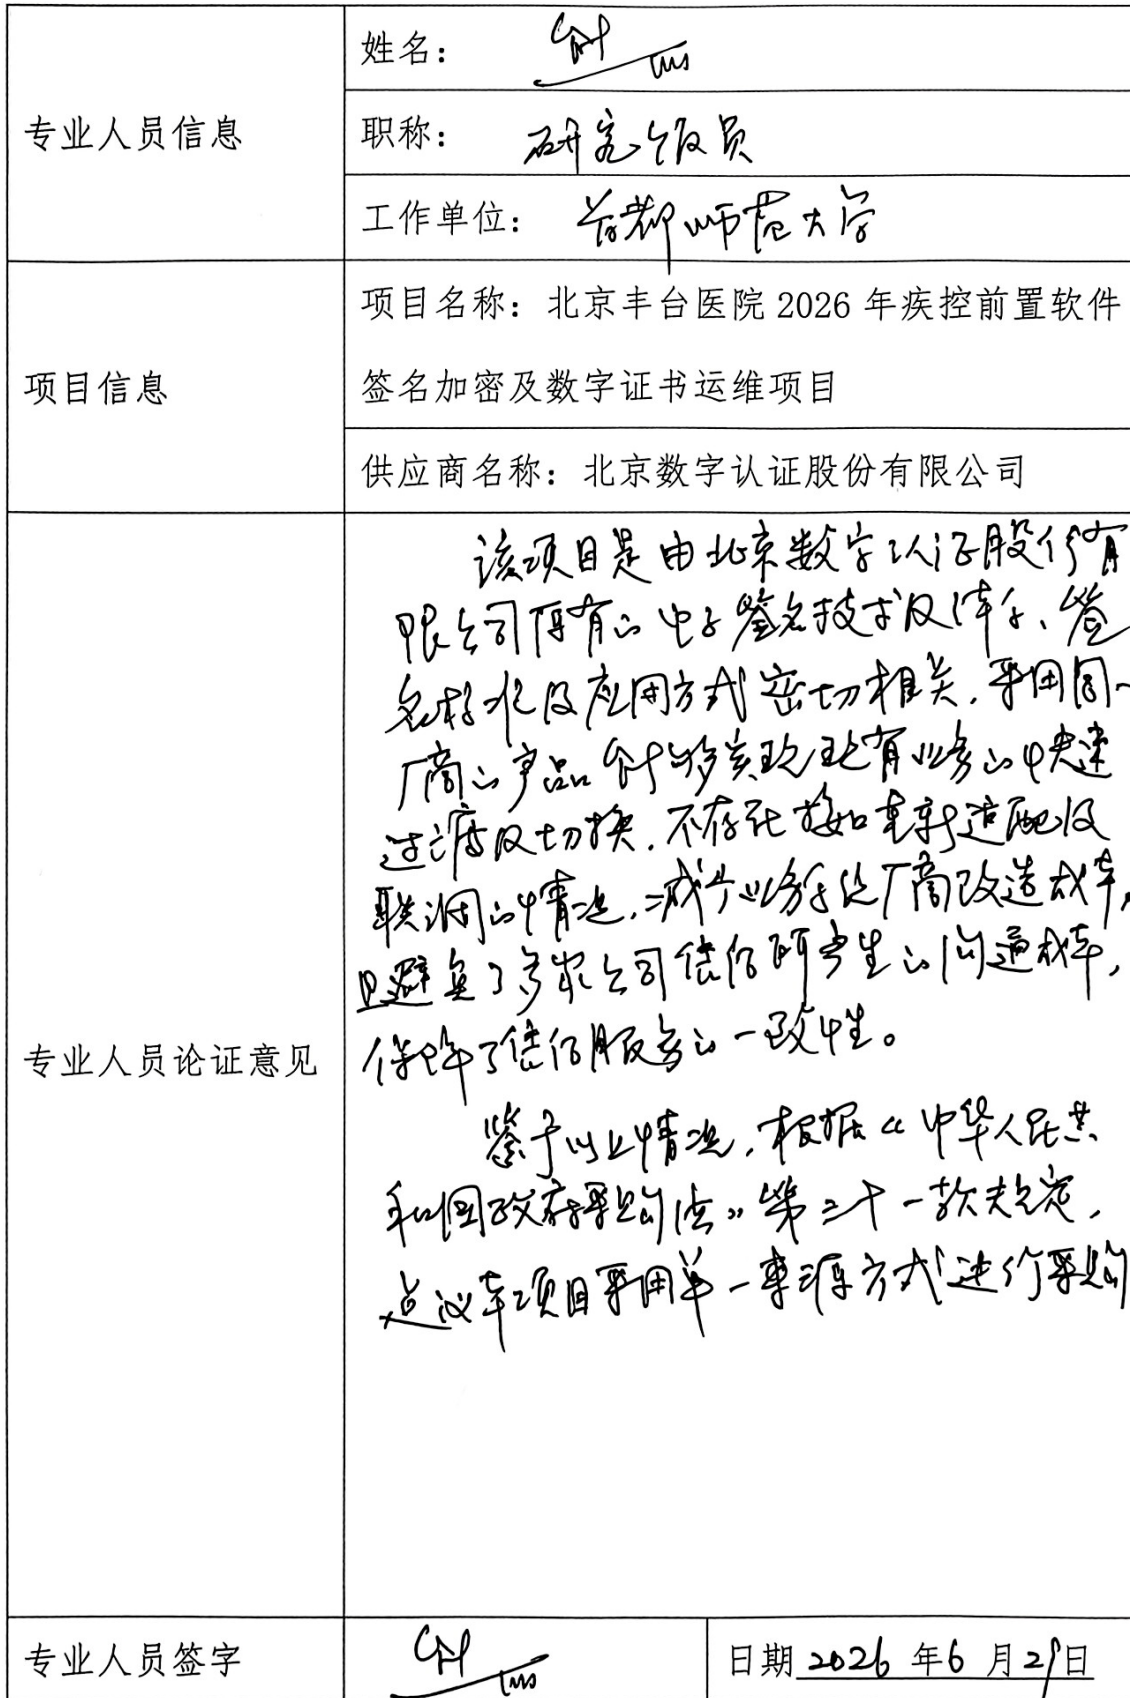 专业人员信息
姓名：
职称： 研究馆员
工作单位： 首都师范大学
项目信息
项目名称：北京丰台医院 2026 年疾控前置软件
签名加密及数字证书运维项目
供应商名称：北京数字认证股份有限公司
专业人员论证意见
该项目是由北京数字认证股份有
限公司原有的电子签名技术及体系、签
名标准及应用方式密切相关，采用同一
厂商的产品 能够实现现有业务的快速
过渡及切换，不存在接口重新适配及
联调的情况，减少业务系统厂商改造成本，
且避免了多家公司信任所产生的沟通成本，
保障了信任服务的一致性。
鉴于以上情况，根据《中华人民共
和国政府采购法》第三十一款规定，
建议本项目采用单一来源方式进行采购
专业人员签字
日期 2026 年 6 月 29 日